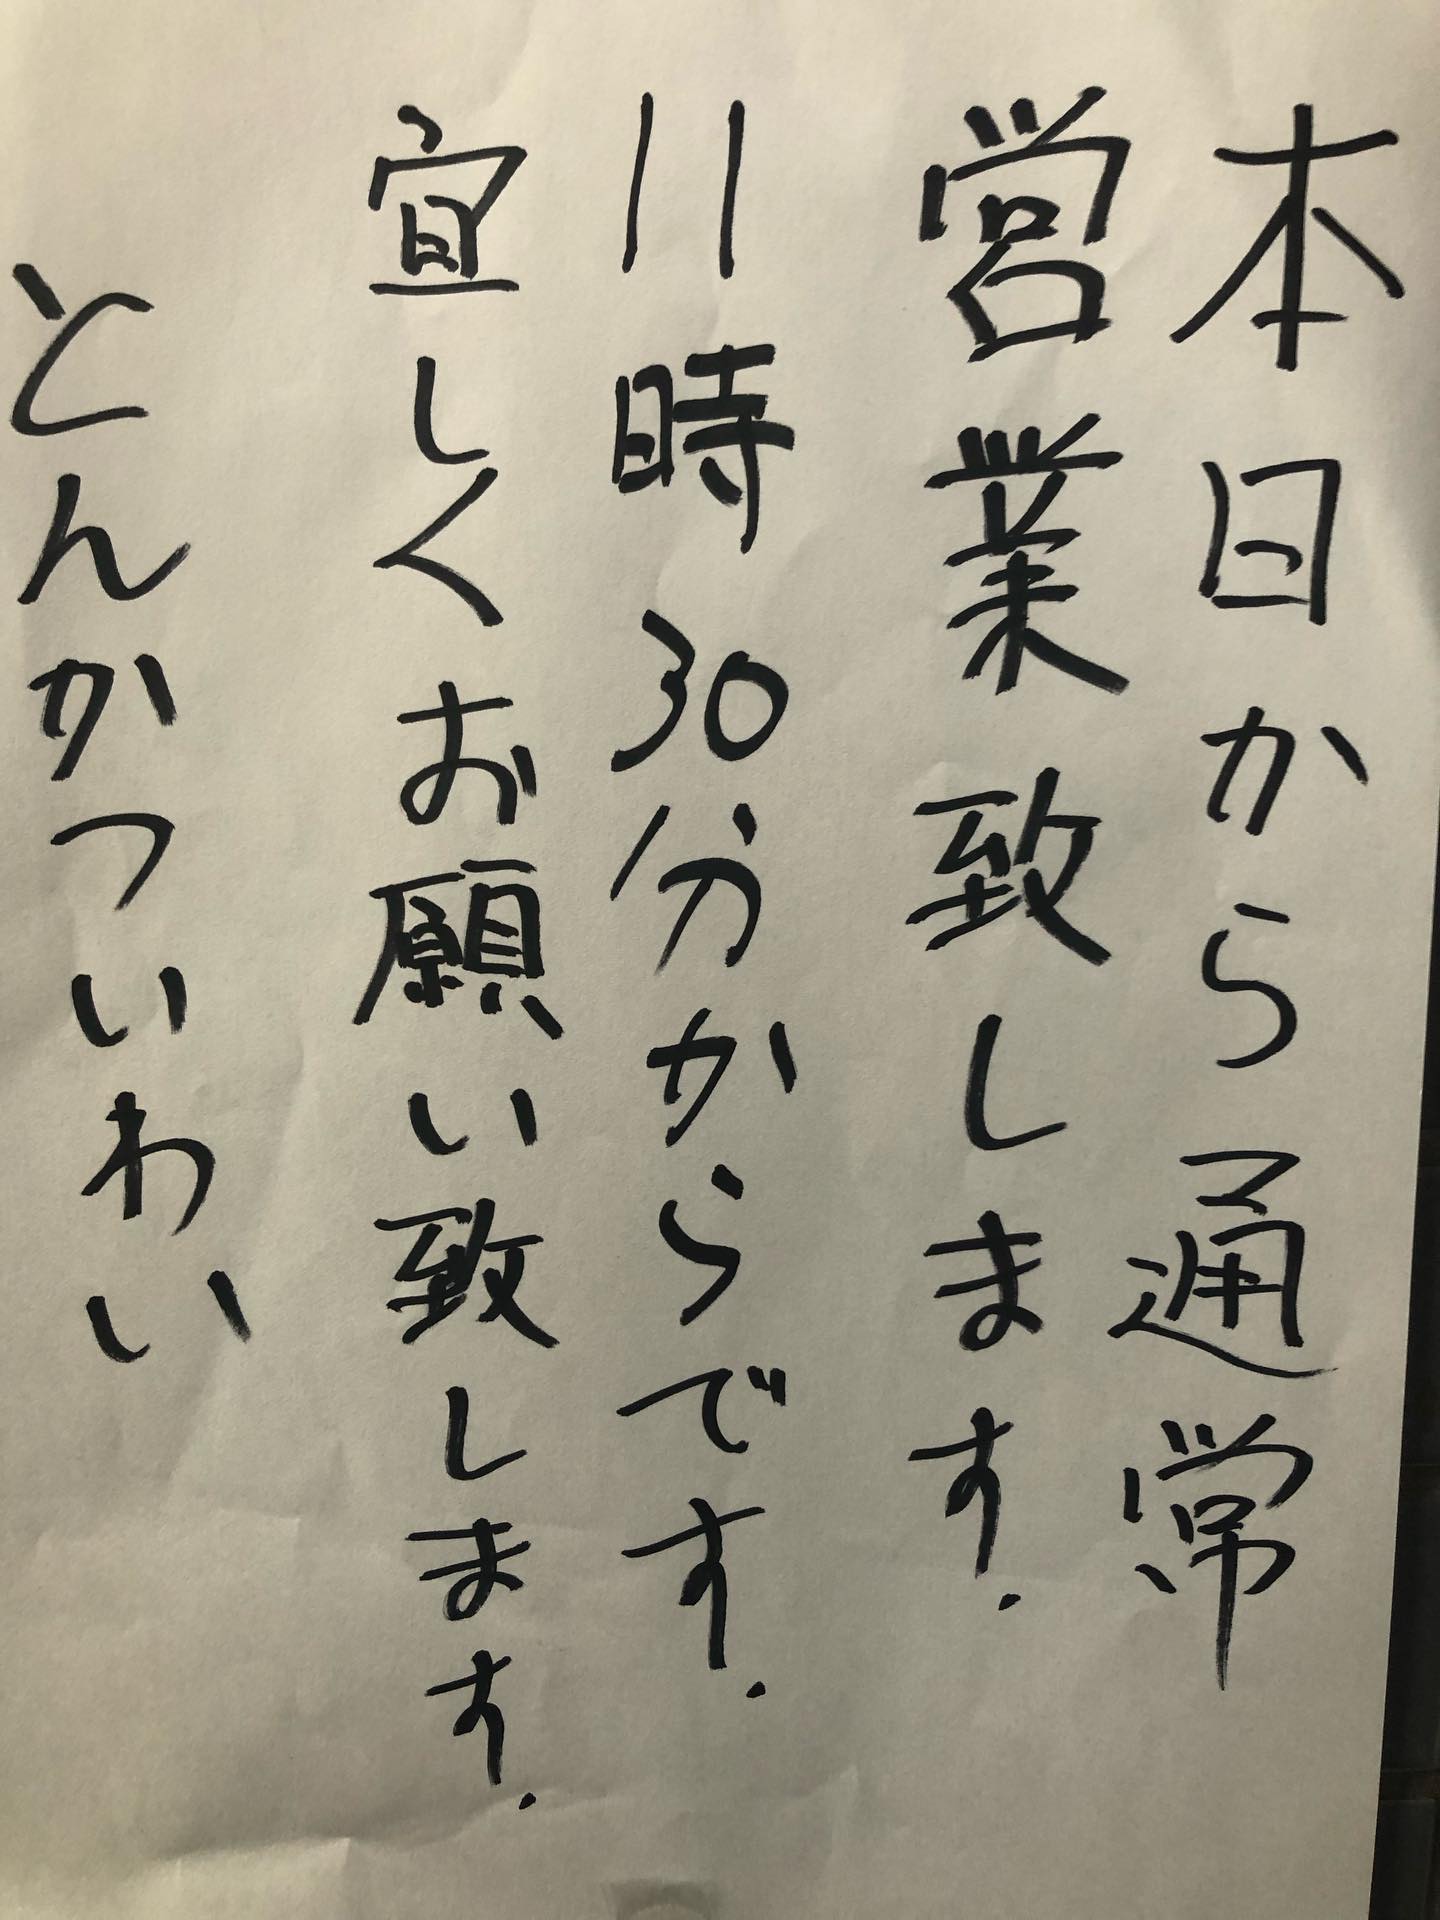 本日から通常
営業致します.
11時30分からです.
宜しくお願い致します.
とんかついわい